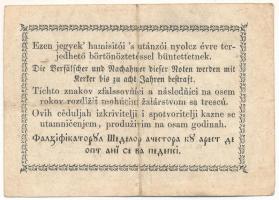 Ezen jegyek' hamisitói 's utánzói nyolcz évre ter-
jedhető börtönöztetéssel büntettetnek.
Die Verfälscher und Nachahmer dieser Noten werden mit
Kerker bis zu acht Jahren bestraft.
Tíchto znakov zfalssovňíci a následňíci na osem
rokov rozdlžiť mohúcím žalárstvom sa trescú.
Ovih céduljah izkrivitelji i spotvoritelji kazne se
utamničenjem, produživim na osam godinah.
Фалзіфікаторꙋл Шеделор ачестора кꙋ арест де
опт ані се ва педепсі.